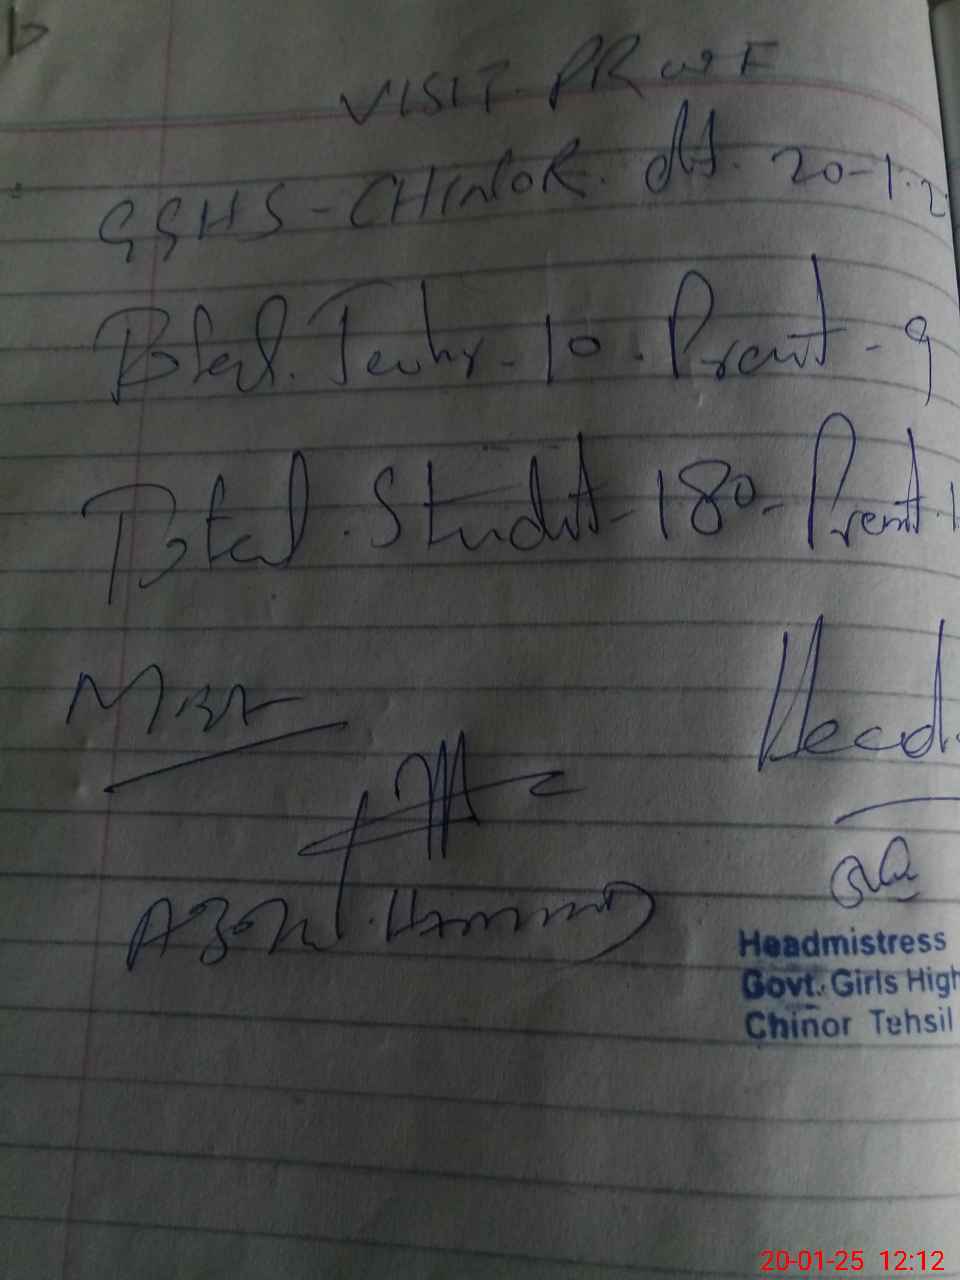 VISIT PROOF
GGHS - CHINOR. dt. 20-1.2
Total. Teachr - 10. Present - 9
Total. Student - 180 - Present 1
Head
Headmistress
Govt. Girls High
Chinor Tehsil
20-01-25 12:12